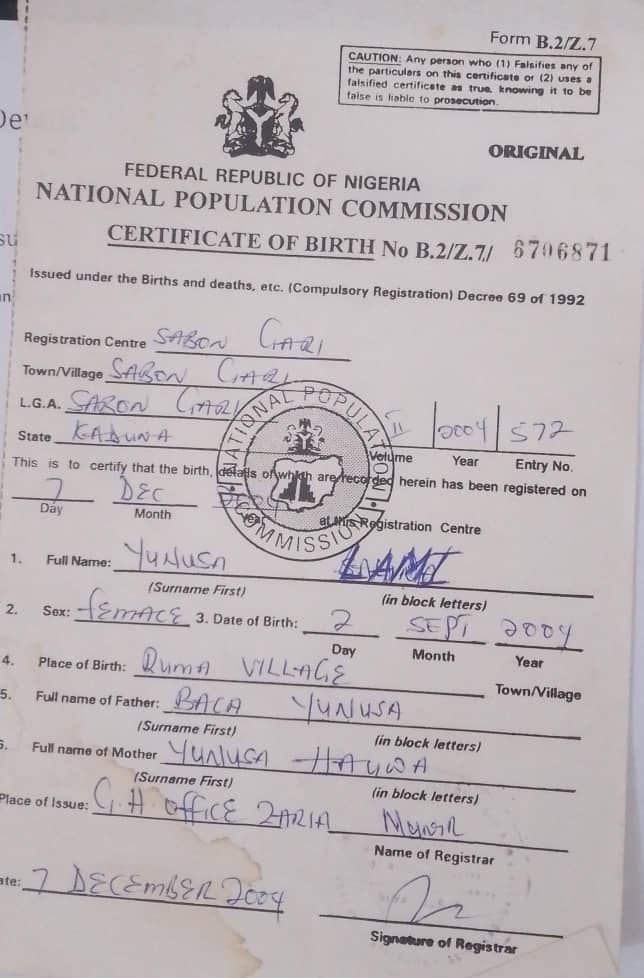 Form B.2/Z.7
CAUTION: Any person who (1) Falsifies any of
the particulars on this certificate or (2) uses a
falsified certificate as true, knowing it to be
false is liable to prosecution.
ORIGINAL
FEDERAL REPUBLIC OF NIGERIA
NATIONAL POPULATION COMMISSION
CERTIFICATE OF BIRTH No B.2/Z.7/ 6706871
Issued under the Births and deaths, etc. (Compulsory Registration) Decree 69 of 1992
Registration Centre SABON GARI
Town/Village SABON GARI
L.G.A. SABON GARI
NATIONAL POPULATION COMMISSION
State KADUNA
II 2004 572
Volume Year Entry No.
This is to certify that the birth, details of which are recorded herein has been registered on
7 DEC
Day Month Year at this Registration Centre
1. Full Name: YUNUSA LAMI
(Surname First) (in block letters)
2. Sex: FEMALE 3. Date of Birth: 2 SEPT 2004
Day Month Year
4. Place of Birth: RUMA VILLAGE
Town/Village
5. Full name of Father: BALA YUNUSA
(Surname First) (in block letters)
Full name of Mother YUNUSA HAUWA
(Surname First) (in block letters)
Place of Issue: G.H OFFICE ZARIA Munir
Name of Registrar
ate: 7 DECEMBER 2004
Signature of Registrar